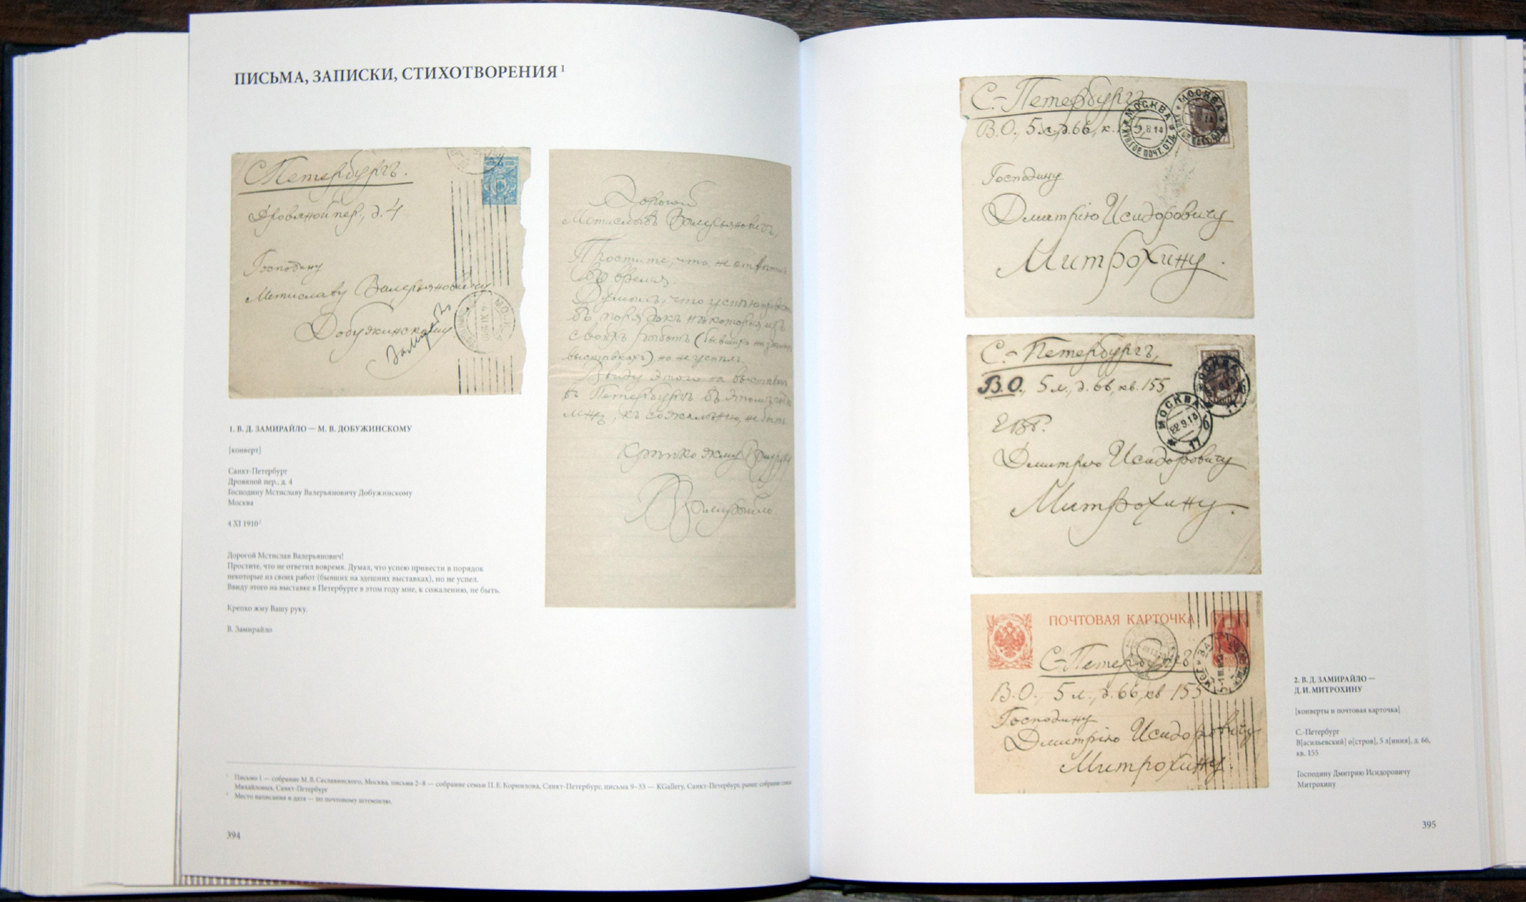 ПИСЬМА, ЗАПИСКИ, СТИХОТВОРЕНИЯ¹
С.Петербургъ.
Дровяной пер., д. 4
Господину
Мстиславу Валерьяновичу
Добужинскому
Замирайло
1. В. Д. ЗАМИРАЙЛО — М. В. ДОБУЖИНСКОМУ
[конверт]
Санкт-Петербург
Дровяной пер., д. 4
Господину Мстиславу Валерьяновичу Добужинскому
Москва
4 XI 1910²
Дорогой Мстислав Валерьянович!
Простите, что не ответил вовремя. Думал, что успею привести в порядок
некоторые из своих работ (бывших на здешних выставках), но не успел.
Ввиду этого на выставке в Петербурге в этом году мне, к сожалению, не быть.
Крепко жму Вашу руку.
В. Замирайло
Дорогой
Мстиславъ Валерьяновичъ,
Простите, что не отвѣтилъ
во время.
Думалъ, что успѣю привести
въ порядокъ нѣкоторыя изъ
своихъ работъ (бывшихъ на
выставкахъ) но не успѣлъ.
Ввиду этого на выставкѣ
въ Петербургѣ въ этомъ году
мнѣ, къ сожалѣнію, не быть.
Крѣпко жму Вашу руку
ВЗамирайло.
¹ Письмо 1 — собрание М. В. Сеславинского, Москва, письма 2–8 — собрание семьи П. Е. Корнилова, Санкт-Петербург, письма 9–33 — KGallery, Санкт-Петербург, ранее собрание семьи
Михайловых, Санкт-Петербург
² Место написания и дата — по почтовому штемпелю.
394
С.-Петербургъ
В.О., 5 л., д. 66, к.
МОСКВА
МОСКВА
Господину
Дмитрію Исидоровичу
Митрохину.
С.-Петербургъ,
В.О., 5 л., д. 66, кв. 155
МОСКВА
МОСКВА
22.9.13
17
ЕВР.
Дмитрію Исидоровичу
Митрохину.
ПОЧТОВАЯ КАРТОЧКА
С.-Петербургъ
В.О., 5 л., д. 66, кв 155
Господину
Дмитрію Исидоровичу
Митрохину.
2. В. Д. ЗАМИРАЙЛО —
Д. И. МИТРОХИНУ
[конверты и почтовая карточка]
С.-Петербург
В[асильевский] о[стров], 5 л[иния], д. 66,
кв. 155
Господину Дмитрию Исидоровичу
Митрохину
395